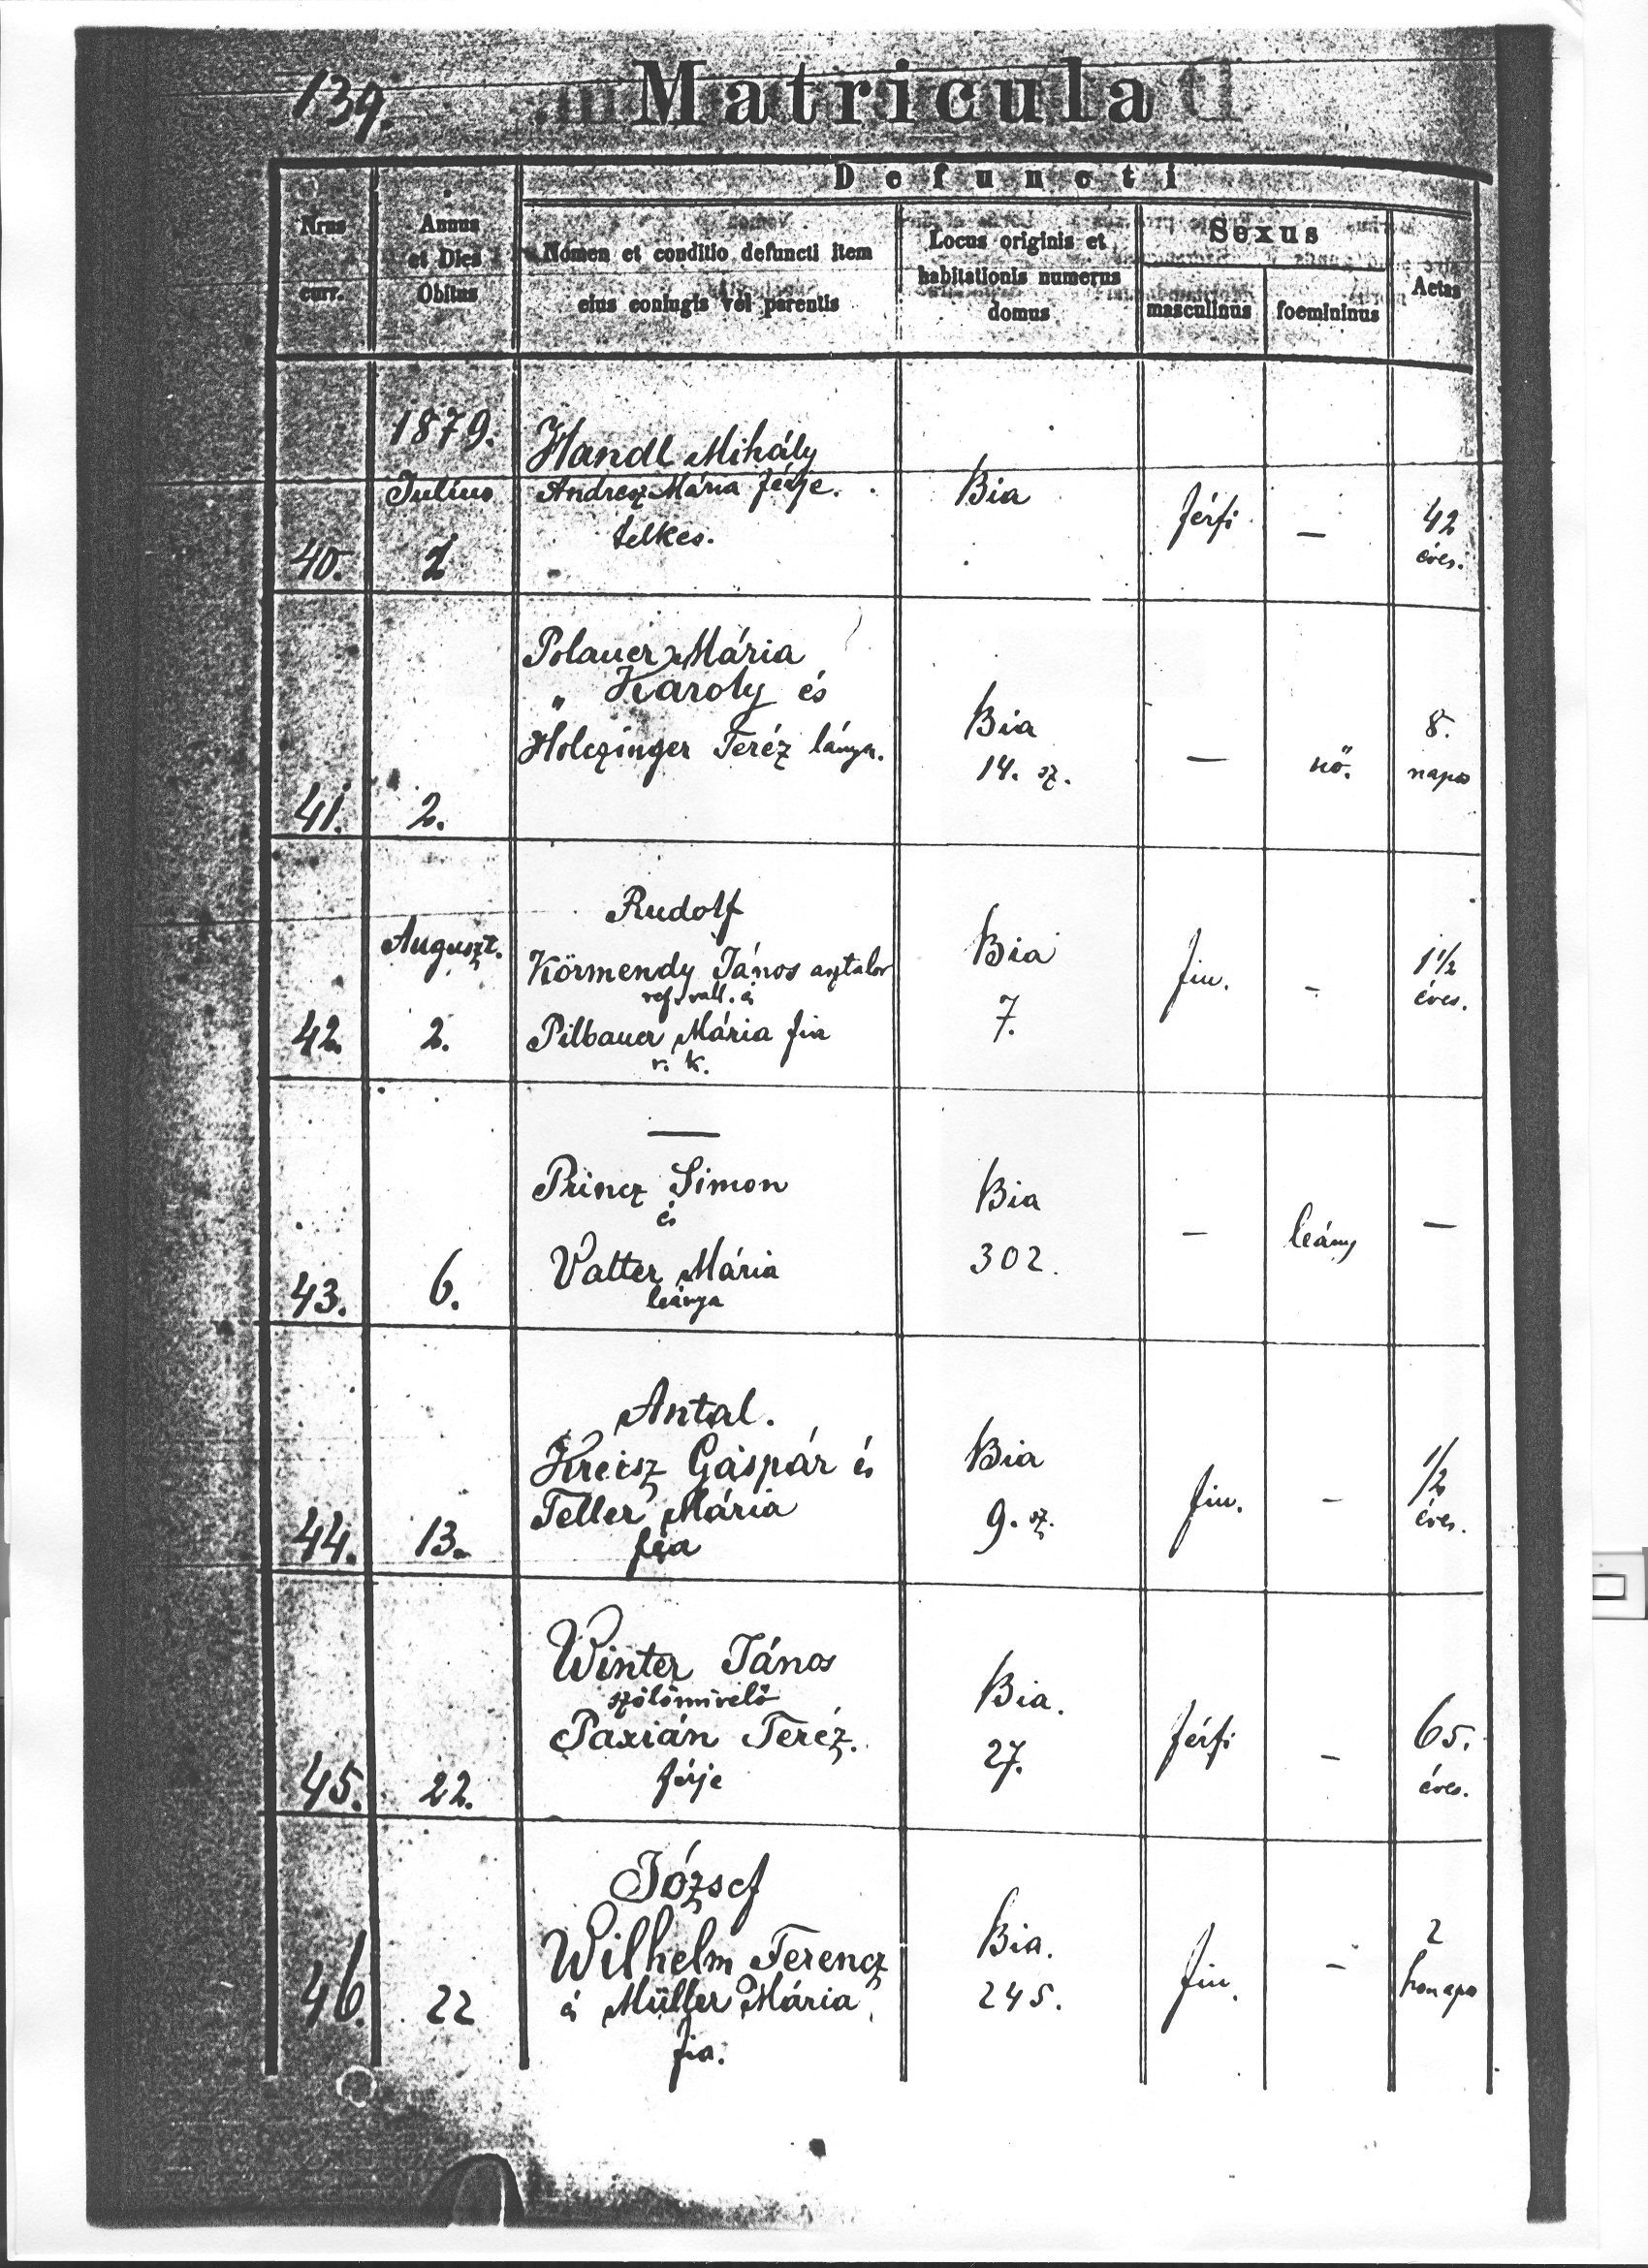 139.
Matricula
Defuncti
Nrus curr.
Annus et Dies Obitus
Nomen et conditio defuncti item eius coniugis vel parentis
Locus originis et habitationis numerus domus
Sexus
masculinus
foemininus
Aetas
1879.
Julius
40.
Handl Mihály
Andresz Mária férje.
telkes.
Bia
férfi
—
42
éves.
41.
2.
Polauer Mária
„ Karoly és
Holczinger Teréz lánya.
Bia
14. sz.
—
nő.
8.
napos
Auguszt.
42.
2.
Rudolf
Körmendy János asztalos
ref. vall. és
Pilbauer Mária fia
r. k.
Bia
7.
fiu.
-
1 1/2
éves.
43.
6.
—
Princz Simon
és
Valter Mária
leánya
Bia
302.
-
leány
—
44.
13.
Antal.
Kreisz Gáspár és
Teller Mária
fia
Bia
9. sz.
fiu.
-
1/2
éves.
45.
22.
Winter János
szőlőmivelő
Paxián Teréz.
férje
Bia.
27.
férfi
-
65.
éves.
46.
22
József
Wilhelm Ferencz
és Müller Mária
fia.
Bia.
245.
fiu.
-
2
honapos